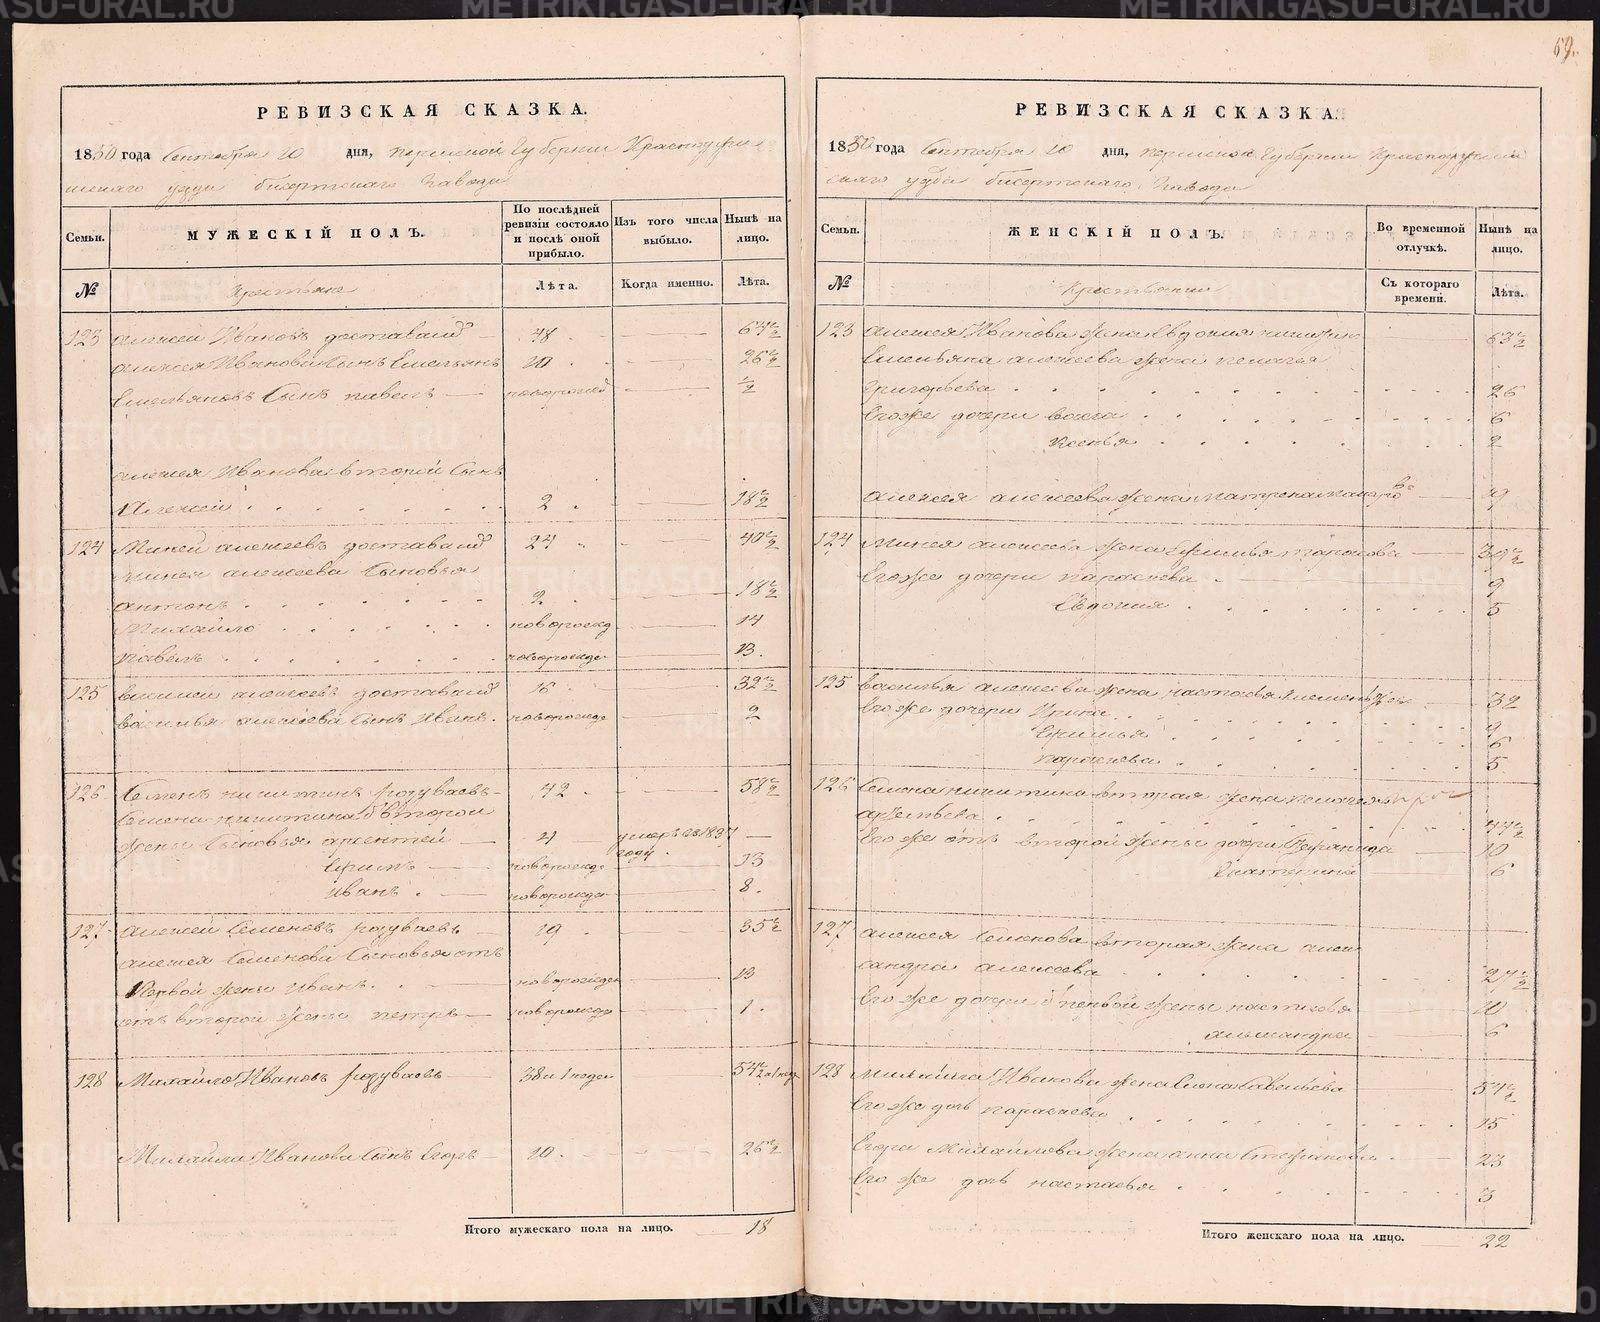 69.
РЕВИЗСКАЯ СКАЗКА.
1850 года Сентября 20 дня, пермской Губернии Красноуфим
скаго уезда бисертскаго завода
Семьи.
МУЖЕСКІЙ ПОЛЪ.
По послѣдней ревизіи состояло и послѣ оной прибыло.
Изъ того числа выбыло.
Нынѣ на лицо.
№
Крестьяне
Лѣта.
Когда именно.
Лѣта.
123 алексей Ивановъ 48
алексея Иванова Сынъ Емельянъ 10 26½
Емельяновъ Сынъ павелъ новорожд ½
алексея Иванова второй Сынъ
Алексей 2 18½
124 Миней алексеевъ 24 40½
минея алексеева Сыновья
антонъ 2 18½
Михайло новорожд 14
павелъ новорожде 13.
125 василей алексеевъ 16 32½
василья алексеева Сынъ Иванъ. новорожде 2
126 Семенъ никитинъ розуваевъ 42 58½
Семена никитина второй
жены Сыновья 4 умеръ въ 1837 году
Ефимъ новорожде 13
Иванъ новорожде 8.
127 алексей Семеновъ розуваевъ 19 35½
алексея Семенова Сыновья отъ
первой жены Иванъ. новорожден 13
отъ второй жены петръ новорожде 1.
128 Михайло Ивановъ розуваевъ 38 и 1 недел 54½ и 1 неде
Михайла Иванова Сынъ Егоръ 10 26½
Итого мужескаго пола на лицо. 18
РЕВИЗСКАЯ СКАЗКА.
1850 года Сентября 20 дня, пермской Губернии Красноуфим
скаго уезда бисертскаго завода
Семьи.
ЖЕНСКІЙ ПОЛЪ.
Во временной отлучкѣ.
Нынѣ на лицо.
№
Крестьянки
Съ котораго времени.
Лѣта.
123 алексея Иванова жена Евдокия 63½
Емельяна алексеева жена пелагея
Григорьева 26
Егоже дочери 6
Ксенья 2
алексея алексеева жена матрена 19
124 минея алексеева жена тарасова 39½
Егоже дочери парасковья 9
Евдокия 5
125 василья алексеева жена настасья 32
Егоже дочери Ирина 9
6
парасковья 5
126 Семена никитина вторая жена пелагея
44½
Егоже отъ второй жены дочери 10
Екатерина 6
127 алексея Семенова вторая жена алек
сандра алексеева 27½
Егоже дочери первой жены настасья 10
александра 6
128 михайла Иванова жена Елена Савельева 54½
Егоже дочь парасковья 15
Егора Михайлова жена анна Стефанова 23
Егоже дочь настасья 3
Итого женскаго пола на лицо. 22
METRIKI.GASO-URAL.RU